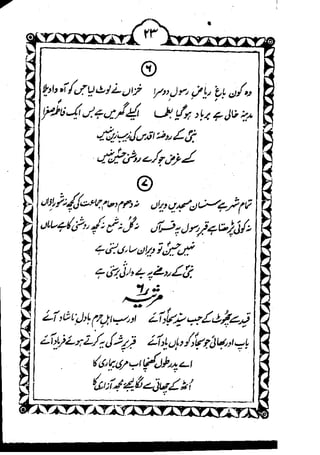 ۲۳
۶
وہ کون باغ ریاض رسول دوسرا خزاں نے لوٹ لیا جس کو آہ واویلا
مدینہ خالی ہے برباد ہوگیا بطحا اکیلے گھر میں ہے بس ایک فاطمہ صغرا
نبی کے روضہ اقدس کی زینبیں نہیں
کے غرض جو کرے روشنی حسین نہیں
۷
تمام شہر ہے سنسان مسجدیں ویراں نہ دھوم دھام جماعت کی کچھ نہ شور اذاں
نہ کوئی پڑھتا ہے قبر رسول پہ قرآں نہ گل نہ شمع نہ کچھ روشنی کا ہے ساماں
نہیں حسین تو ویران ساری بستی ہے
نبی کے روضے پہ بے وارثی برستی ہے
مرثیہ ۶
قید سے چھوٹ کے جب سید سجاد آئے اور سب اہل حرم با دل ناشاد آئے
باپ اور بھائی جو سجاد کو وہاں یاد آئے قبر شہ کی پہ کرتے ہوئے فریاد آئے
اے پدر طول کھنچا اب مری بیماری کا
اٹھ کے چھاتی سے لگا لیجے مجھ آزاری کا